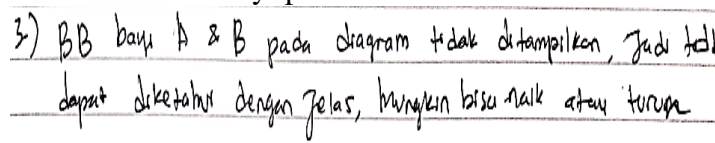 3.) BB bayi A & B pada diagram tidak ditampilkan, Jadi tdk
dapat diketahui dengan Jelas, Mungkin bisa naik atau turun